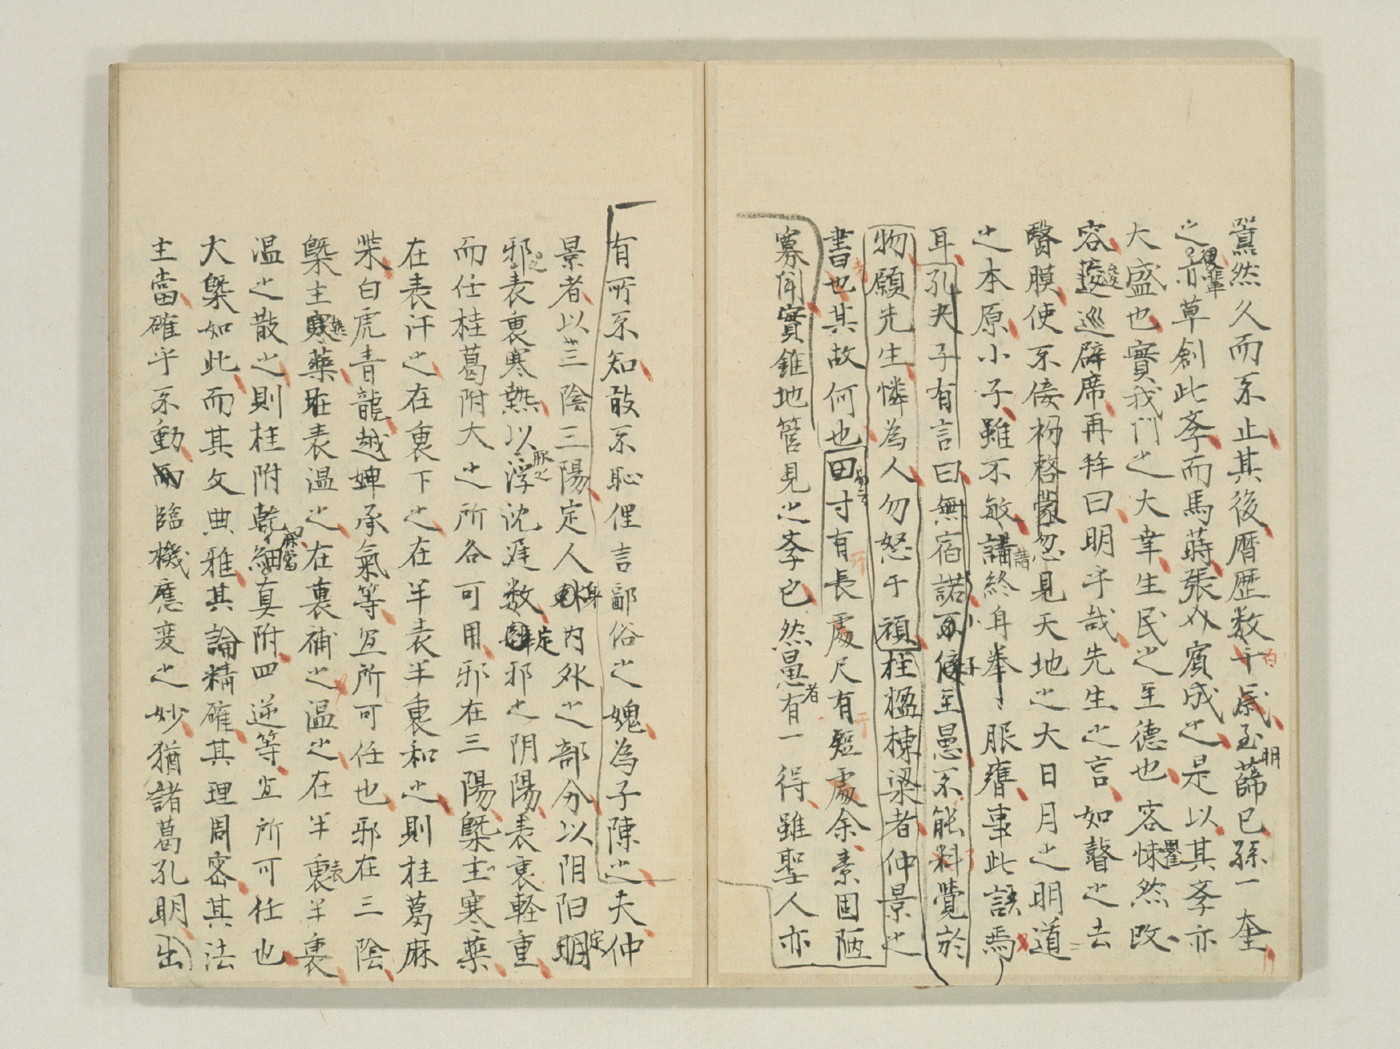 囂然久而不止其後曆歴数千歳至明薛已孫一奎
之後輩亦草創此 而馬蒔張 賓成之是以其 亦
大盛也實我門之大幸生民之至德也客悚然改
容逡巡辟席再拝曰明乎哉先生之言如瞽之去
醫膜使不倰 啓蒙忽見天地之大日月之明道
之本原小子雖不敏請終身拳々服膺事此語焉
耳孔夫子有言曰無宿諾 小子至愚不能料覺於
物願先生憐為人勿怒于頑柱楹棟梁者仲景之
書也其故何也 寸有所長處尺有所短處余素固陋
寡聞實錐地管見之 已然愚者有一得雖聖人亦
有所不知敢不恥俚言鄙俗之媿為子陳之夫仲
景者以三陰三陽定人身内外之部分以阴阳定
邪之表裏寒熱以脉之浮沈遅数定邪之阴陽表裏軽重
而任桂葛附大之所各可用邪在三陽槩主寒薬
在表汗之在裏下之在半表半裏和之則桂葛麻
柴白虎青龍越婢承氣等宜所可任也邪在三陰
槩主熱薬在表温之在裏補之温之在半表半裏
温之散之則桂附乾細真附四逆等宜所可任也
大槩如此而其文典雅其論精確其理周密其法
主當確乎不動而臨機應変之妙猶諸葛孔明出